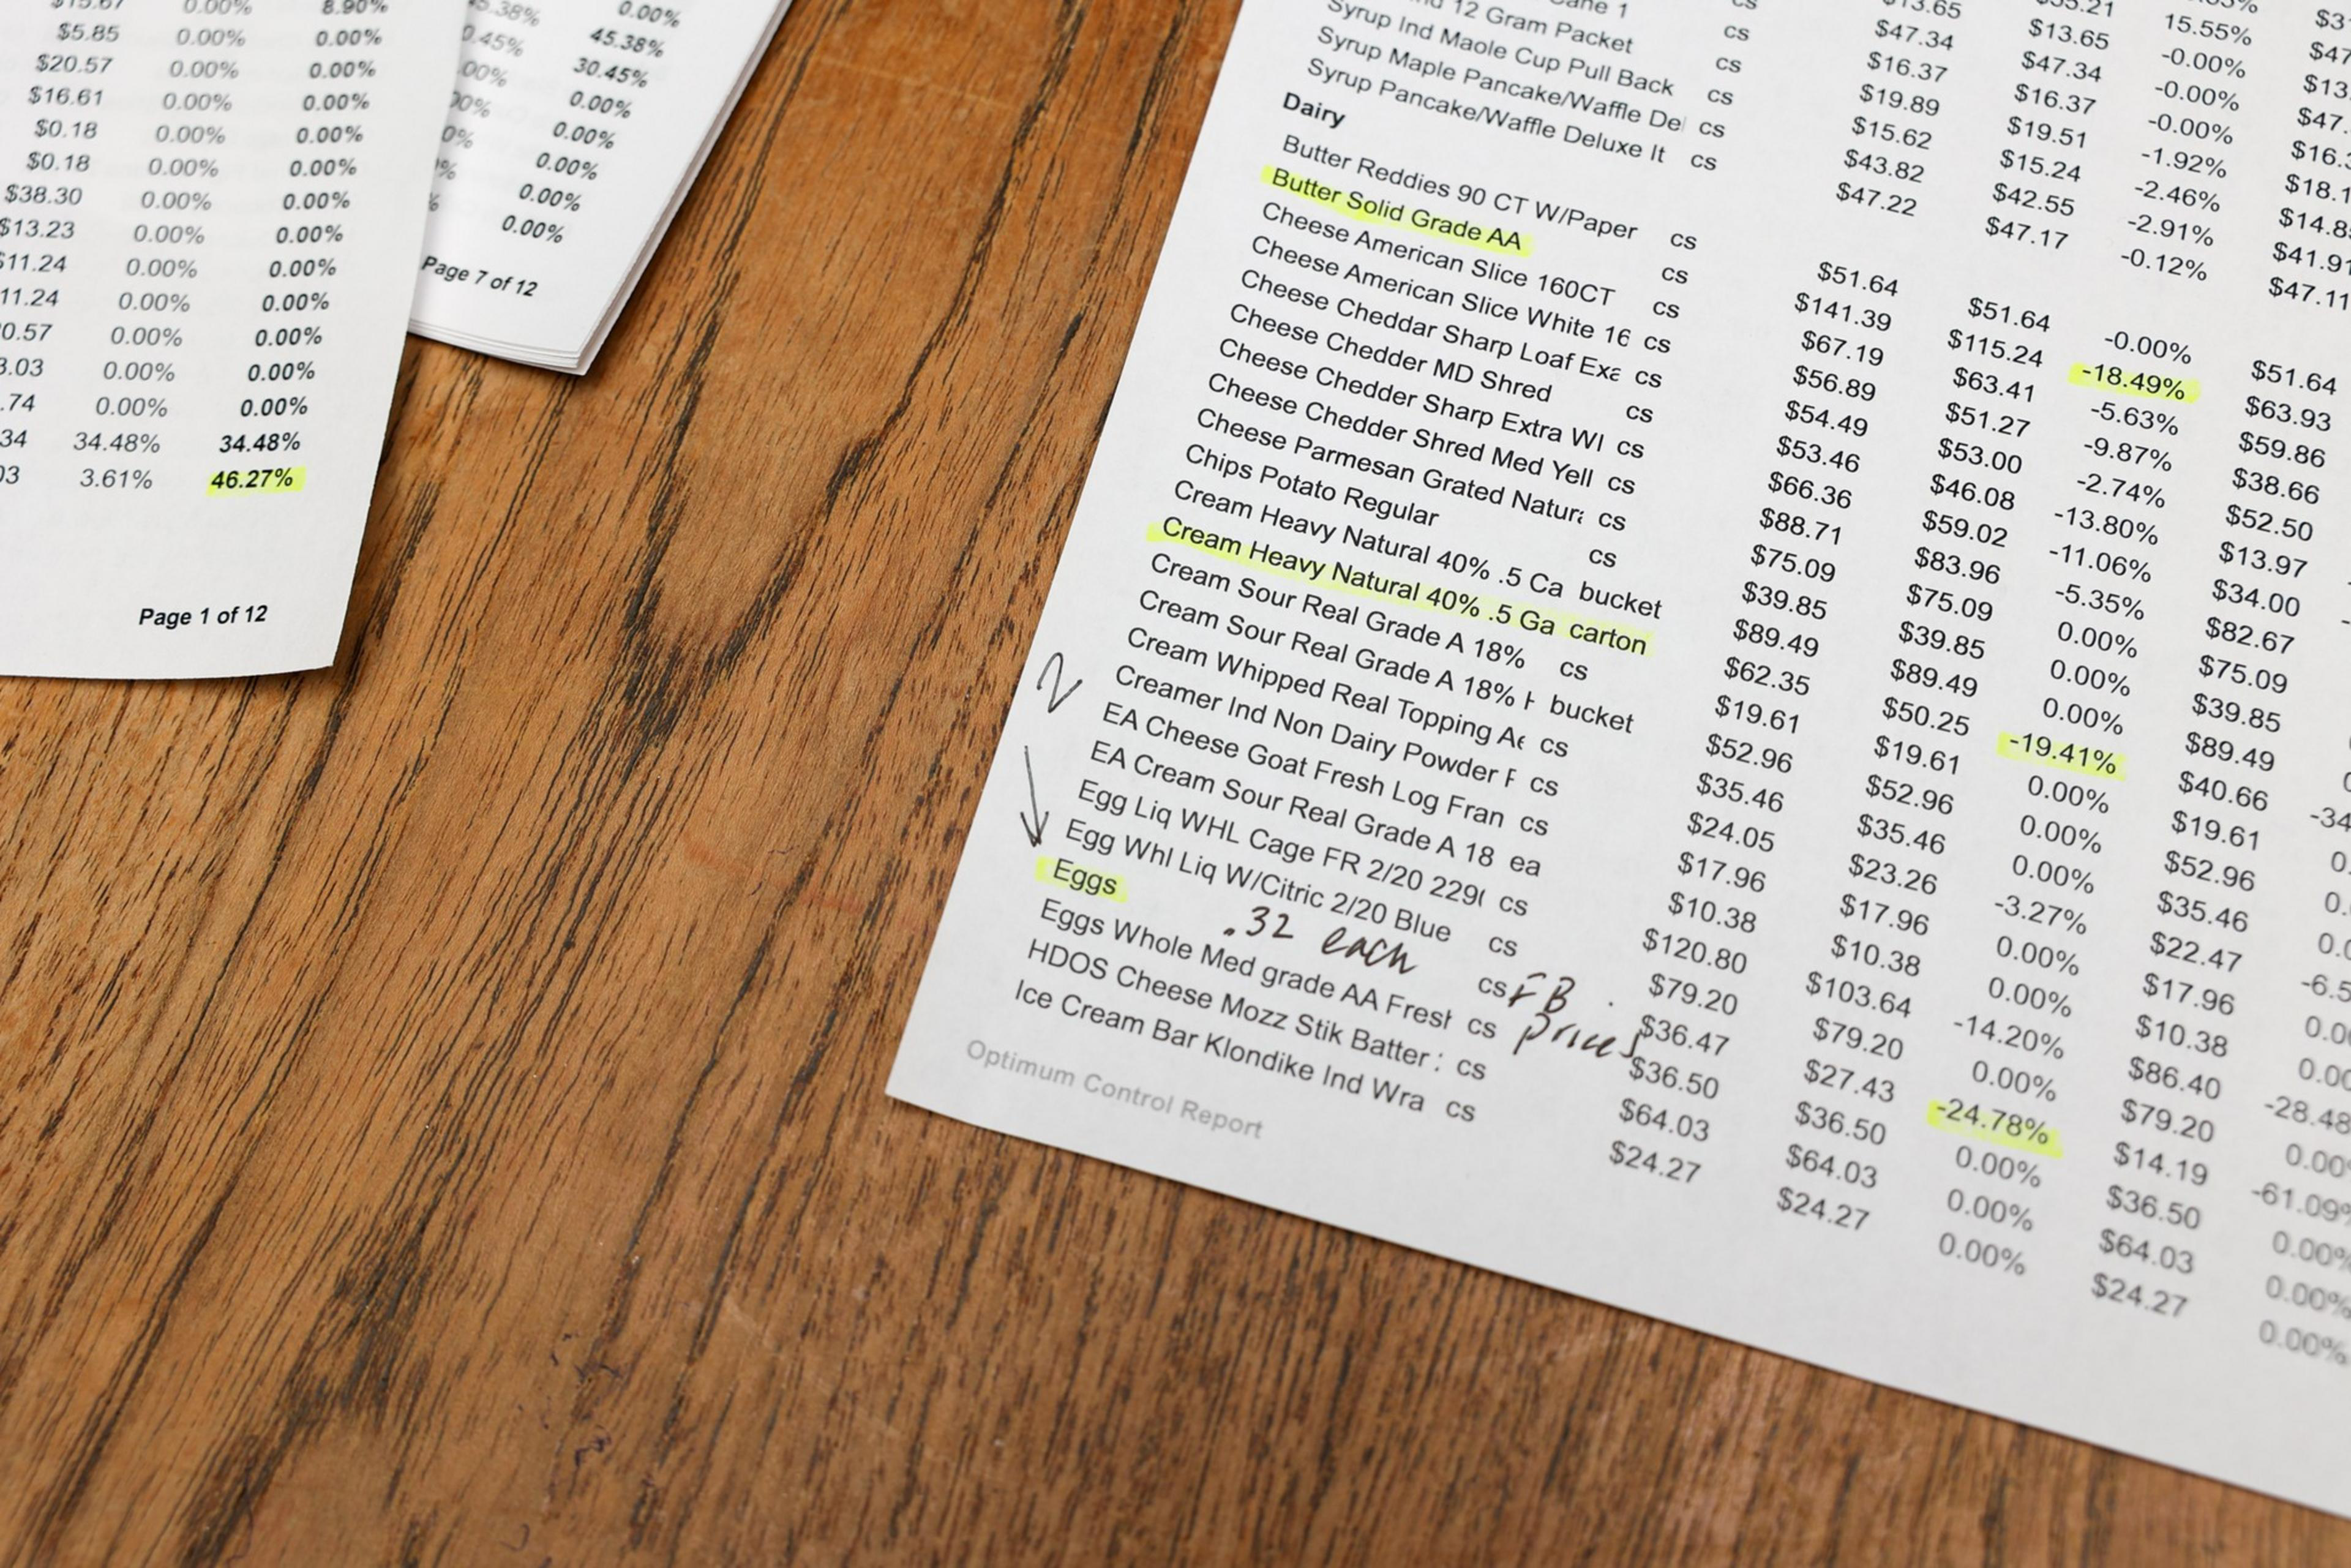 $15.67 0.00% 8.90%
$5.85 0.00% 0.00%
$20.57 0.00% 0.00%
$16.61 0.00% 0.00%
$0.18 0.00% 0.00%
$0.18 0.00% 0.00%
$38.30 0.00% 0.00%
$13.23 0.00% 0.00%
$11.24 0.00% 0.00%
11.24 0.00% 0.00%
0.57 0.00% 0.00%
3.03 0.00% 0.00%
.74 0.00% 0.00%
34 34.48% 34.48%
03 3.61% 46.27%
Page 1 of 12
0.00%
45.38% 45.38%
0.45% 30.45%
.00% 0.00%
00% 0.00%
0% 0.00%
% 0.00%
% 0.00%
Page 7 of 12
15.55%
$13.65 $13.65 -0.00% $13.
$47.34 $47.34 -0.00% $47.
cs $16.37 $16.37 -0.00% $16.3
12 Gram Packet cs $19.89 $19.51 -1.92% $18.1
Syrup Ind Maole Cup Pull Back cs $15.62 $15.24 -2.46% $14.8
Syrup Maple Pancake/Waffle De cs $43.82 $42.55 -2.91% $41.91
Syrup Pancake/Waffle Deluxe It cs $47.22 $47.17 -0.12% $47.11
Dairy
Butter Reddies 90 CT W/Paper cs $51.64 $51.64 -0.00% $51.64
Butter Solid Grade AA cs $141.39 $115.24 -18.49% $63.93
Cheese American Slice 160CT cs $67.19 $63.41 -5.63% $59.86
Cheese American Slice White 16 cs $56.89 $51.27 -9.87% $38.66
Cheese Cheddar Sharp Loaf Exa cs $54.49 $53.00 -2.74% $52.50
Cheese Chedder MD Shred cs $53.46 $46.08 -13.80% $13.97
Cheese Chedder Sharp Extra WI cs $66.36 $59.02 -11.06% $34.00
Cheese Chedder Shred Med Yell cs $88.71 $83.96 -5.35% $82.67
Cheese Parmesan Grated Natura cs $75.09 $75.09 0.00% $75.09
Chips Potato Regular cs $39.85 $39.85 0.00% $39.85
Cream Heavy Natural 40% .5 Ca bucket $89.49 $89.49 0.00% $89.49
Cream Heavy Natural 40% .5 Ga carton $62.35 $50.25 -19.41% $40.66 -34
Cream Sour Real Grade A 18% cs $19.61 $19.61 0.00% $19.61 0.
Cream Sour Real Grade A 18% H bucket $52.96 $52.96 0.00% $52.96 0.
Cream Whipped Real Topping Ae cs $35.46 $35.46 0.00% $35.46 0.0
Creamer Ind Non Dairy Powder F cs $24.05 $23.26 -3.27% $22.47 -6.5
EA Cheese Goat Fresh Log Fran cs $17.96 $17.96 0.00% $17.96 0.0
EA Cream Sour Real Grade A 18 ea $10.38 $10.38 0.00% $10.38 0.00
Egg Liq WHL Cage FR 2/20 229( cs $120.80 $103.64 -14.20% $86.40 -28.48
Egg Whl Liq W/Citric 2/20 Blue cs $79.20 $79.20 0.00% $79.20 0.00
Eggs .32 each cs FB prices $36.47 $27.43 -24.78% $14.19 -61.09%
Eggs Whole Med grade AA Fresh cs $36.50 $36.50 0.00% $36.50 0.00%
HDOS Cheese Mozz Stik Batter : cs $64.03 $64.03 0.00% $64.03 0.00%
Ice Cream Bar Klondike Ind Wra cs $24.27 $24.27 0.00% $24.27 0.00%
Optimum Control Report